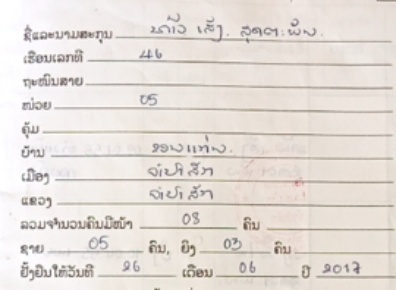 ຊື່ແລະນາມສະກຸນ ທ້າວ ເສັງ. ສຸ
ເຮືອນເລກທີ 46
ຖະໜົນສາຍ
ໜ່ວຍ 05
ຄຸ້ມ
ບ້ານ
ເມືອງ ຈຳປາສັກ
ແຂວງ ຈຳປາສັກ
ລວມຈຳນວນຄົນມີໜ້າ 08 ຄົນ
ຊາຍ 05 ຄົນ, ຍິງ 03 ຄົນ
ຢັ້ງຢືນໃຫ້ວັນທີ 26 ເດືອນ 06 ປີ 2017